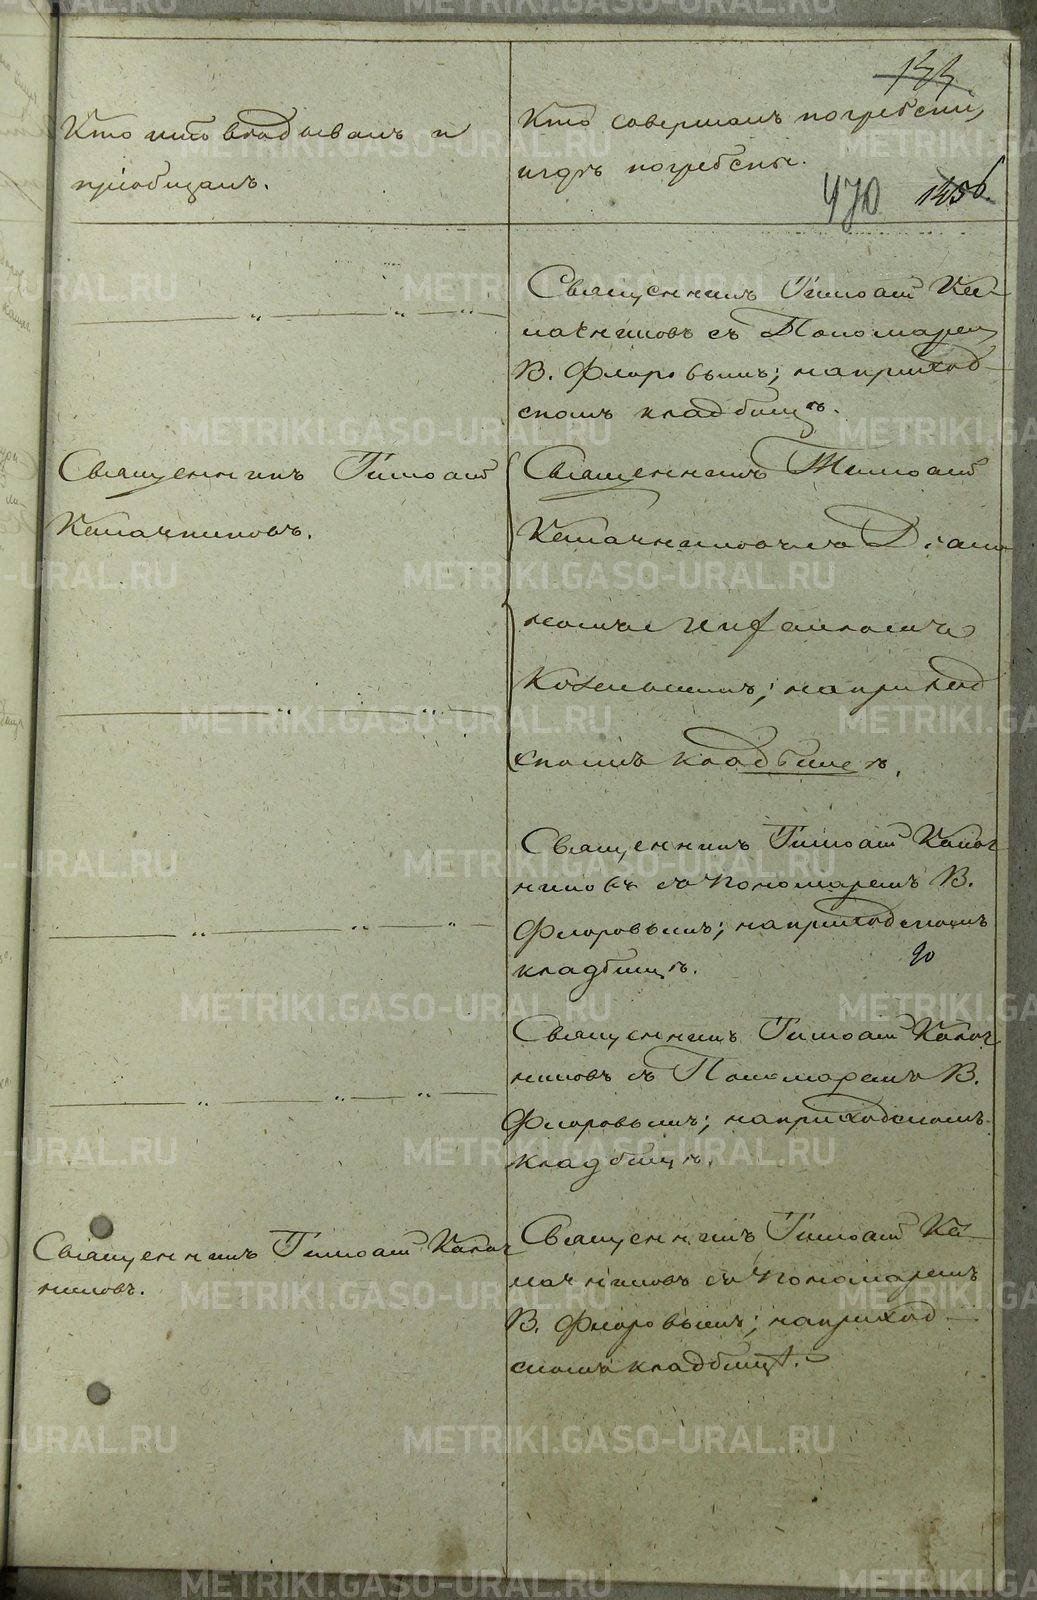 144.
Кто исповѣдывалъ и
пріобщалъ.
Кто совершалъ погребеніе
и гдѣ погребены.
470 1456.
Священникъ Тимоѳей Ка-
лачниковъ съ Пономаремъ
В. Флоровымъ; на приход-
скомъ кладбищѣ.
Священникъ Тимоѳей
Калачниковъ.
Священникъ Тимоѳей
Калачниковъ съ Діако-
номъ
; на приход
скомъ кладбищѣ.
Священникъ Тимоѳей Калач
никовъ съ Пономаремъ В.
Флоровымъ; на приходскомъ
кладбищѣ.
Священникъ Тимоѳей Калач
никовъ съ Пономаремъ В.
Флоровымъ; на приходскомъ
кладбищѣ.
Священникъ Тимоѳей Калач
никовъ.
Священникъ Тимоѳей Ка-
лачниковъ съ Пономаремъ
В. Флоровымъ; на приход-
скомъ кладбищѣ.
METRIKI.GASO-URAL.RU